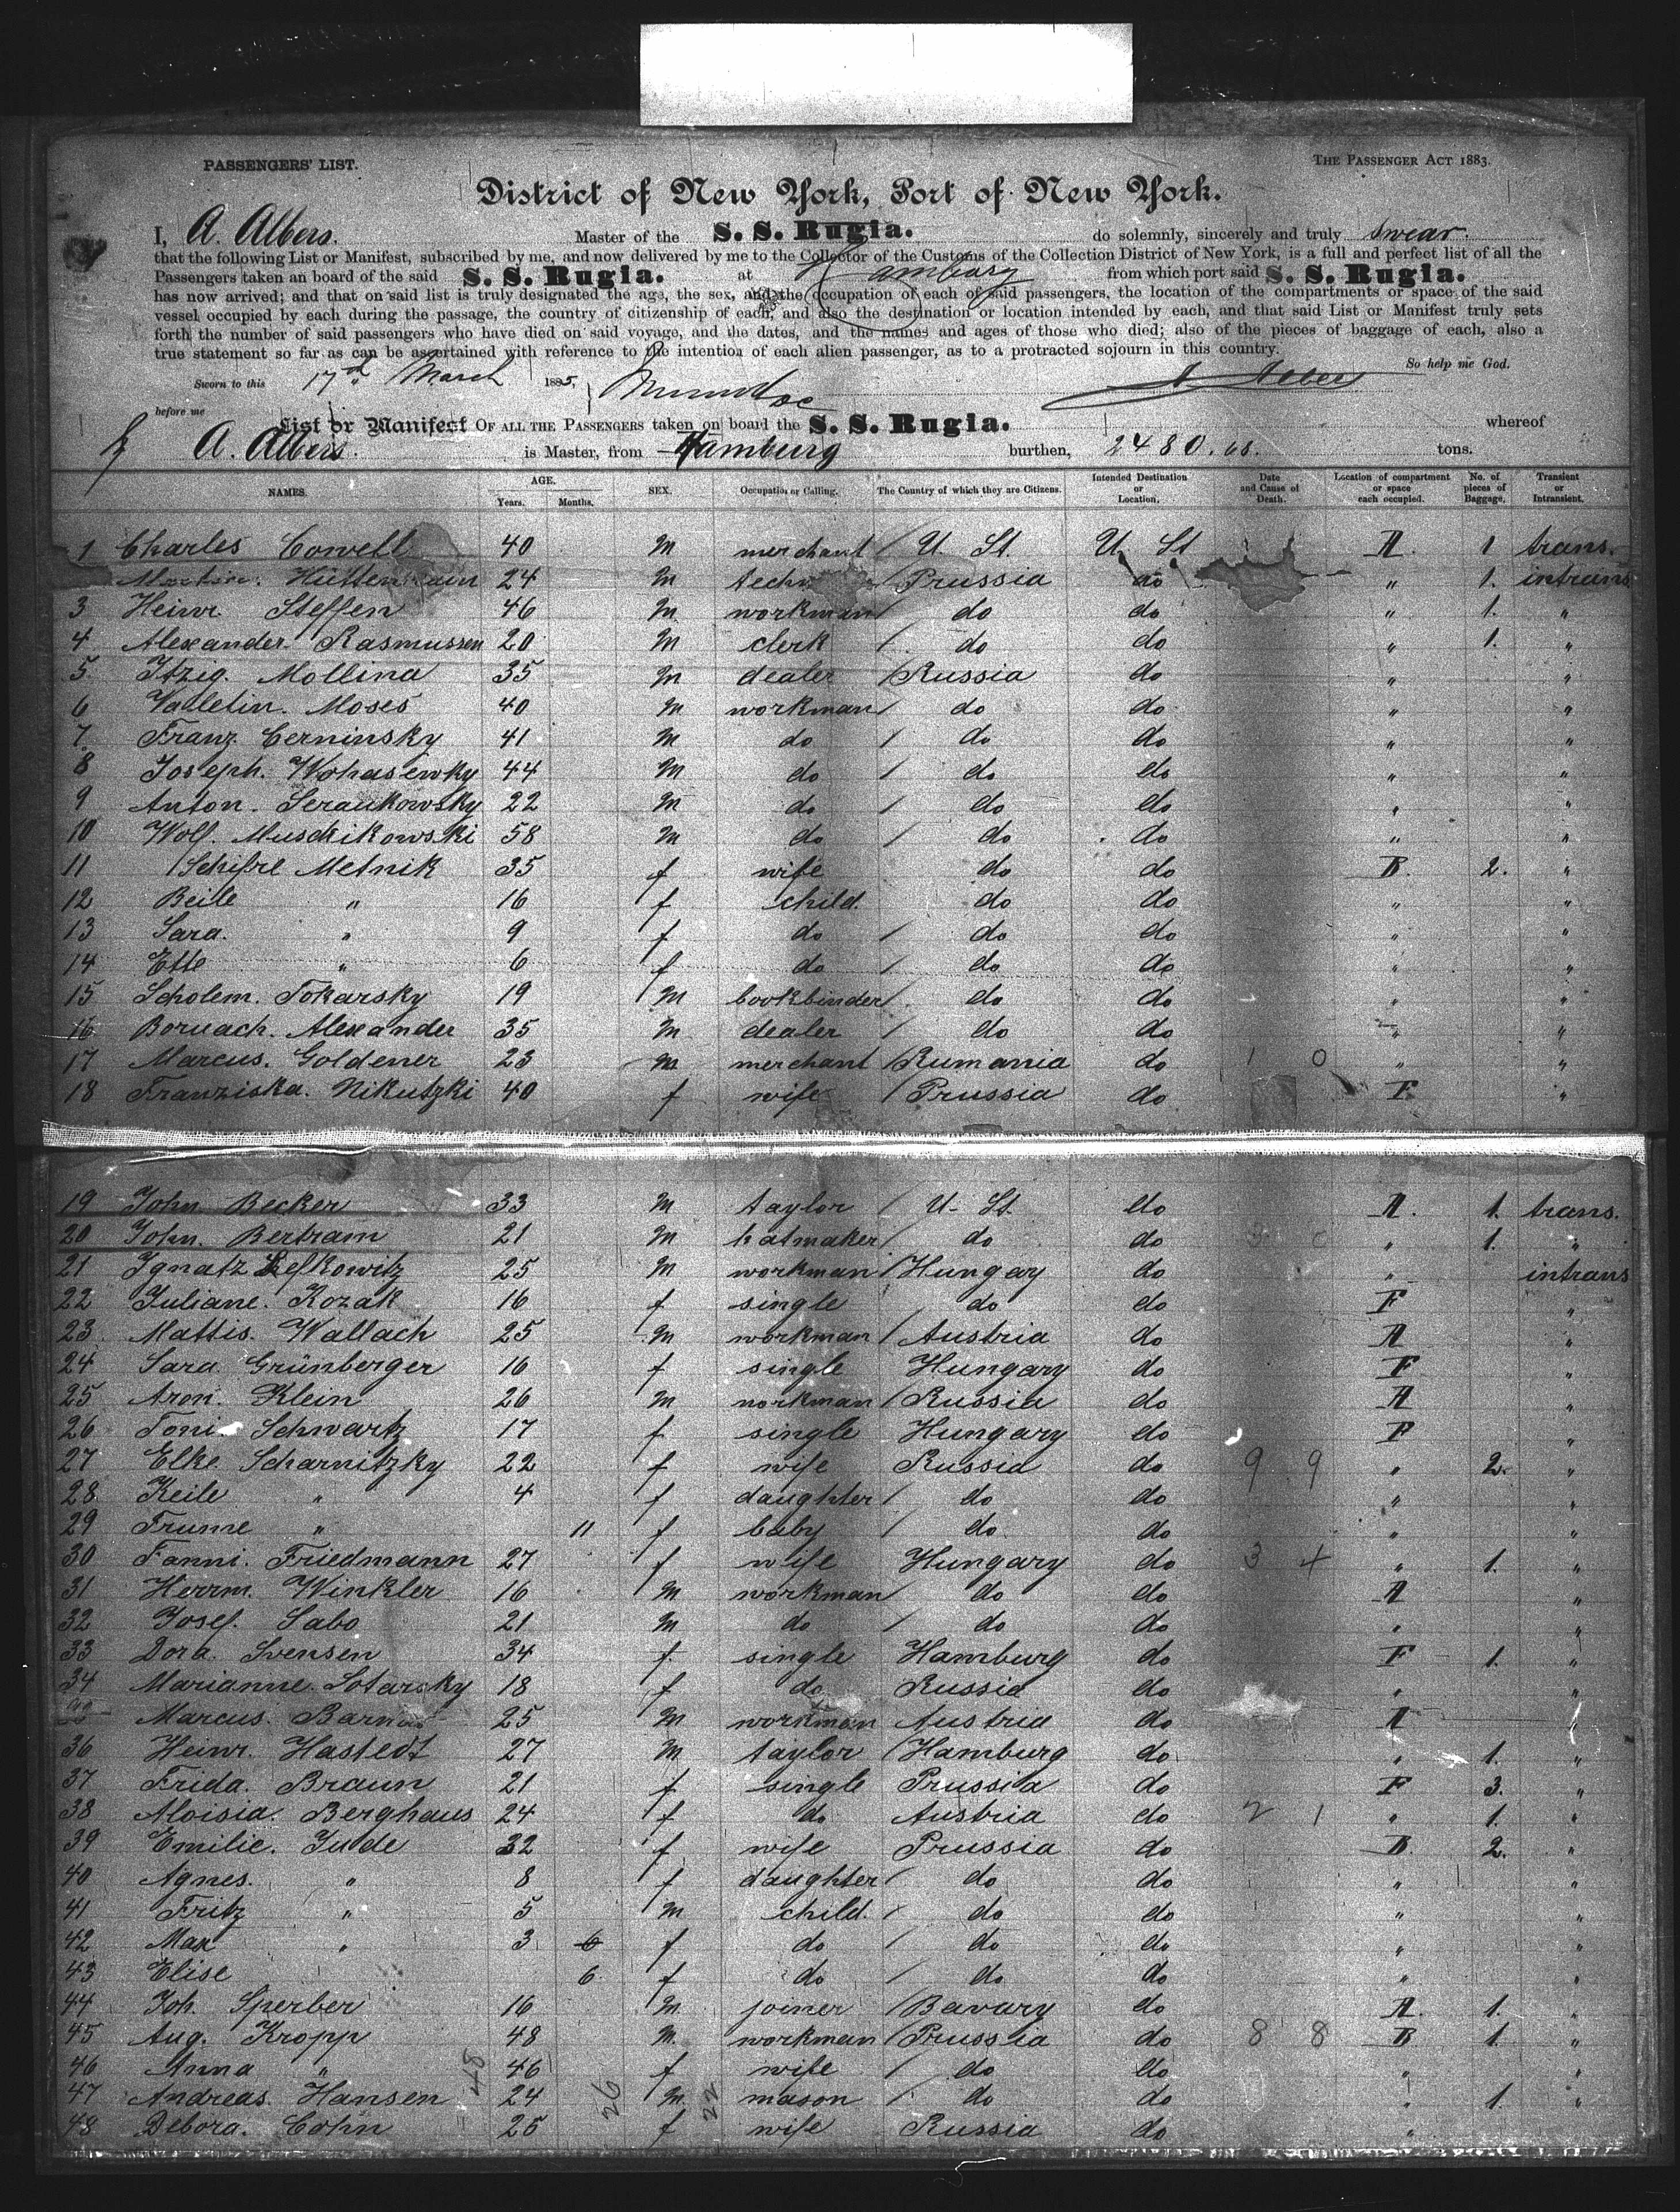 PASSENGERS' LIST.
THE PASSENGER ACT 1883.
District of New York, Port of New York.
I, A. Albers. Master of the S. S. Rugia. do solemnly, sincerely and truly swear.
that the following List or Manifest, subscribed by me, and now delivered by me to the Collector of the Customs of the Collection District of New York, is a full and perfect list of all the
Passengers taken on board of the said S. S. Rugia. at Hamburg from which port said S. S. Rugia.
has now arrived; and that on said list is truly designated the age, the sex, and the occupation of each of said passengers, the location of the compartments or space of the said
vessel occupied by each during the passage, the country of citizenship of each, and also the destination or location intended by each, and that said List or Manifest truly sets
forth the number of said passengers who have died on said voyage, and the dates, and the names and ages of those who died; also of the pieces of baggage of each, also a
true statement so far as can be ascertained with reference to the intention of each alien passenger, as to a protracted sojourn in this country.
So help me God.
Sworn to this 17th March 1885, A Albers
before me
List or Manifest OF ALL THE PASSENGERS taken on board the S. S. Rugia. whereof
A. Albers. is Master, from Hamburg burthen, 2480.68. tons.
NAMES. AGE. Years. Months. SEX. Occupation or Calling. The Country of which they are Citizens. Intended Destination or Location. Date and Cause of Death. Location of compartment or space each occupied. No. of pieces of Baggage. Transient or Intransient.
1 Charles Cowell 40 M merchant / U. St. U. St A. 1 trans.
Hüttenhain 24 M / Prussia do " 1. intrans
3 Heinr. Steffen 46 M workman / do do " 1. "
4 Alexander. Rasmussen 20 M clerk / do do " 1. "
5 Itzig. Mollina 35 M dealer / Russia do " "
6 Valletin. Moses 40 M workman / do do " "
7 Franz. Cerninsky 41 M do / do do " "
8 Joseph. Wohasewky 44 M do / do do " "
9 Anton. Seraukowsky 22 M do / do do " "
10 Wolf. Muschikowski 58 M do / do do " "
11 Schifre Metnik 35 f wife do do B. 2. "
12 Beile " 16 f child. do do " "
13 Sara. " 9 f do / do do " "
14 Ette " 6 f do / do do " "
15 Scholem. Tokarsky 19 M bookbinder / do do " "
16 Boruach. Alexander 35 M dealer / do do " "
17 Marcus. Goldener 23 M merchant / Rumania do 1 0 " "
18 Franziska. Nikutzki 40 f wife / Prussia do F "
19 John Becker 33 M taylor / U. St. do A. 1. trans.
20 John. Bertram 21 M hatmaker / do do " 1. "
21 Ignatz Lefkowitz 25 M workman / Hungay do " intrans
22 Juliane. Kozak 16 f single do do F "
23 Mattis. Wallach 25 M workman / Austria do A "
24 Sara. Grünberger 16 f single Hungary do F "
25 Aron. Klein 26 M workman / Russia do A "
26 Toni. Schwartz 17 f single Hungary do F "
27 Elke. Scharnitzky 22 f wife Russia do 9 9 " 2. "
28 Keile " 4 f daughter / do do " "
29 Frume " 11 f baby / do do " "
30 Fanni. Friedmann 27 f wife Hungary do 3 4 " 1. "
31 Herrm. Winkler 16 M workman / do do A "
32 Josef. Sabo 21 M do / do do " "
33 Dora. Svensen 34 f. single Hamburg do F 1. "
34 Marianne. Lotarsky 18 f do Russia do " "
Marcus. 25 M workman Austria do A
36 Heinr. Hastedt 27 M taylor / Hamburg do " 1. "
37 Frida. Braun 21 f single Prussia do F 3. "
38 Aloisia. Berghaus 24 f do Austria do 2 1 " 1. "
39 Emilie. Jude 32 f wife Prussia do B. 2. "
40 Agnes. " 8 f daughter / do do " "
41 Fritz " 5 M child. / do do " "
42 Max " 3 6 f do / do do " "
43 Elise 6 f do / do do " "
44 Joh. Sperber 16 M joiner / Bavary do A. 1. "
45 Aug. Kropp 48 M. workman / Prussia do 8 8 B 1. "
46 Anna " 46 f wife / do do " "
47 Andreas. Hansen 24 M. mason / do do " 1. "
48 Debora. Cohn 25 f wife Russia do "
48 26 22